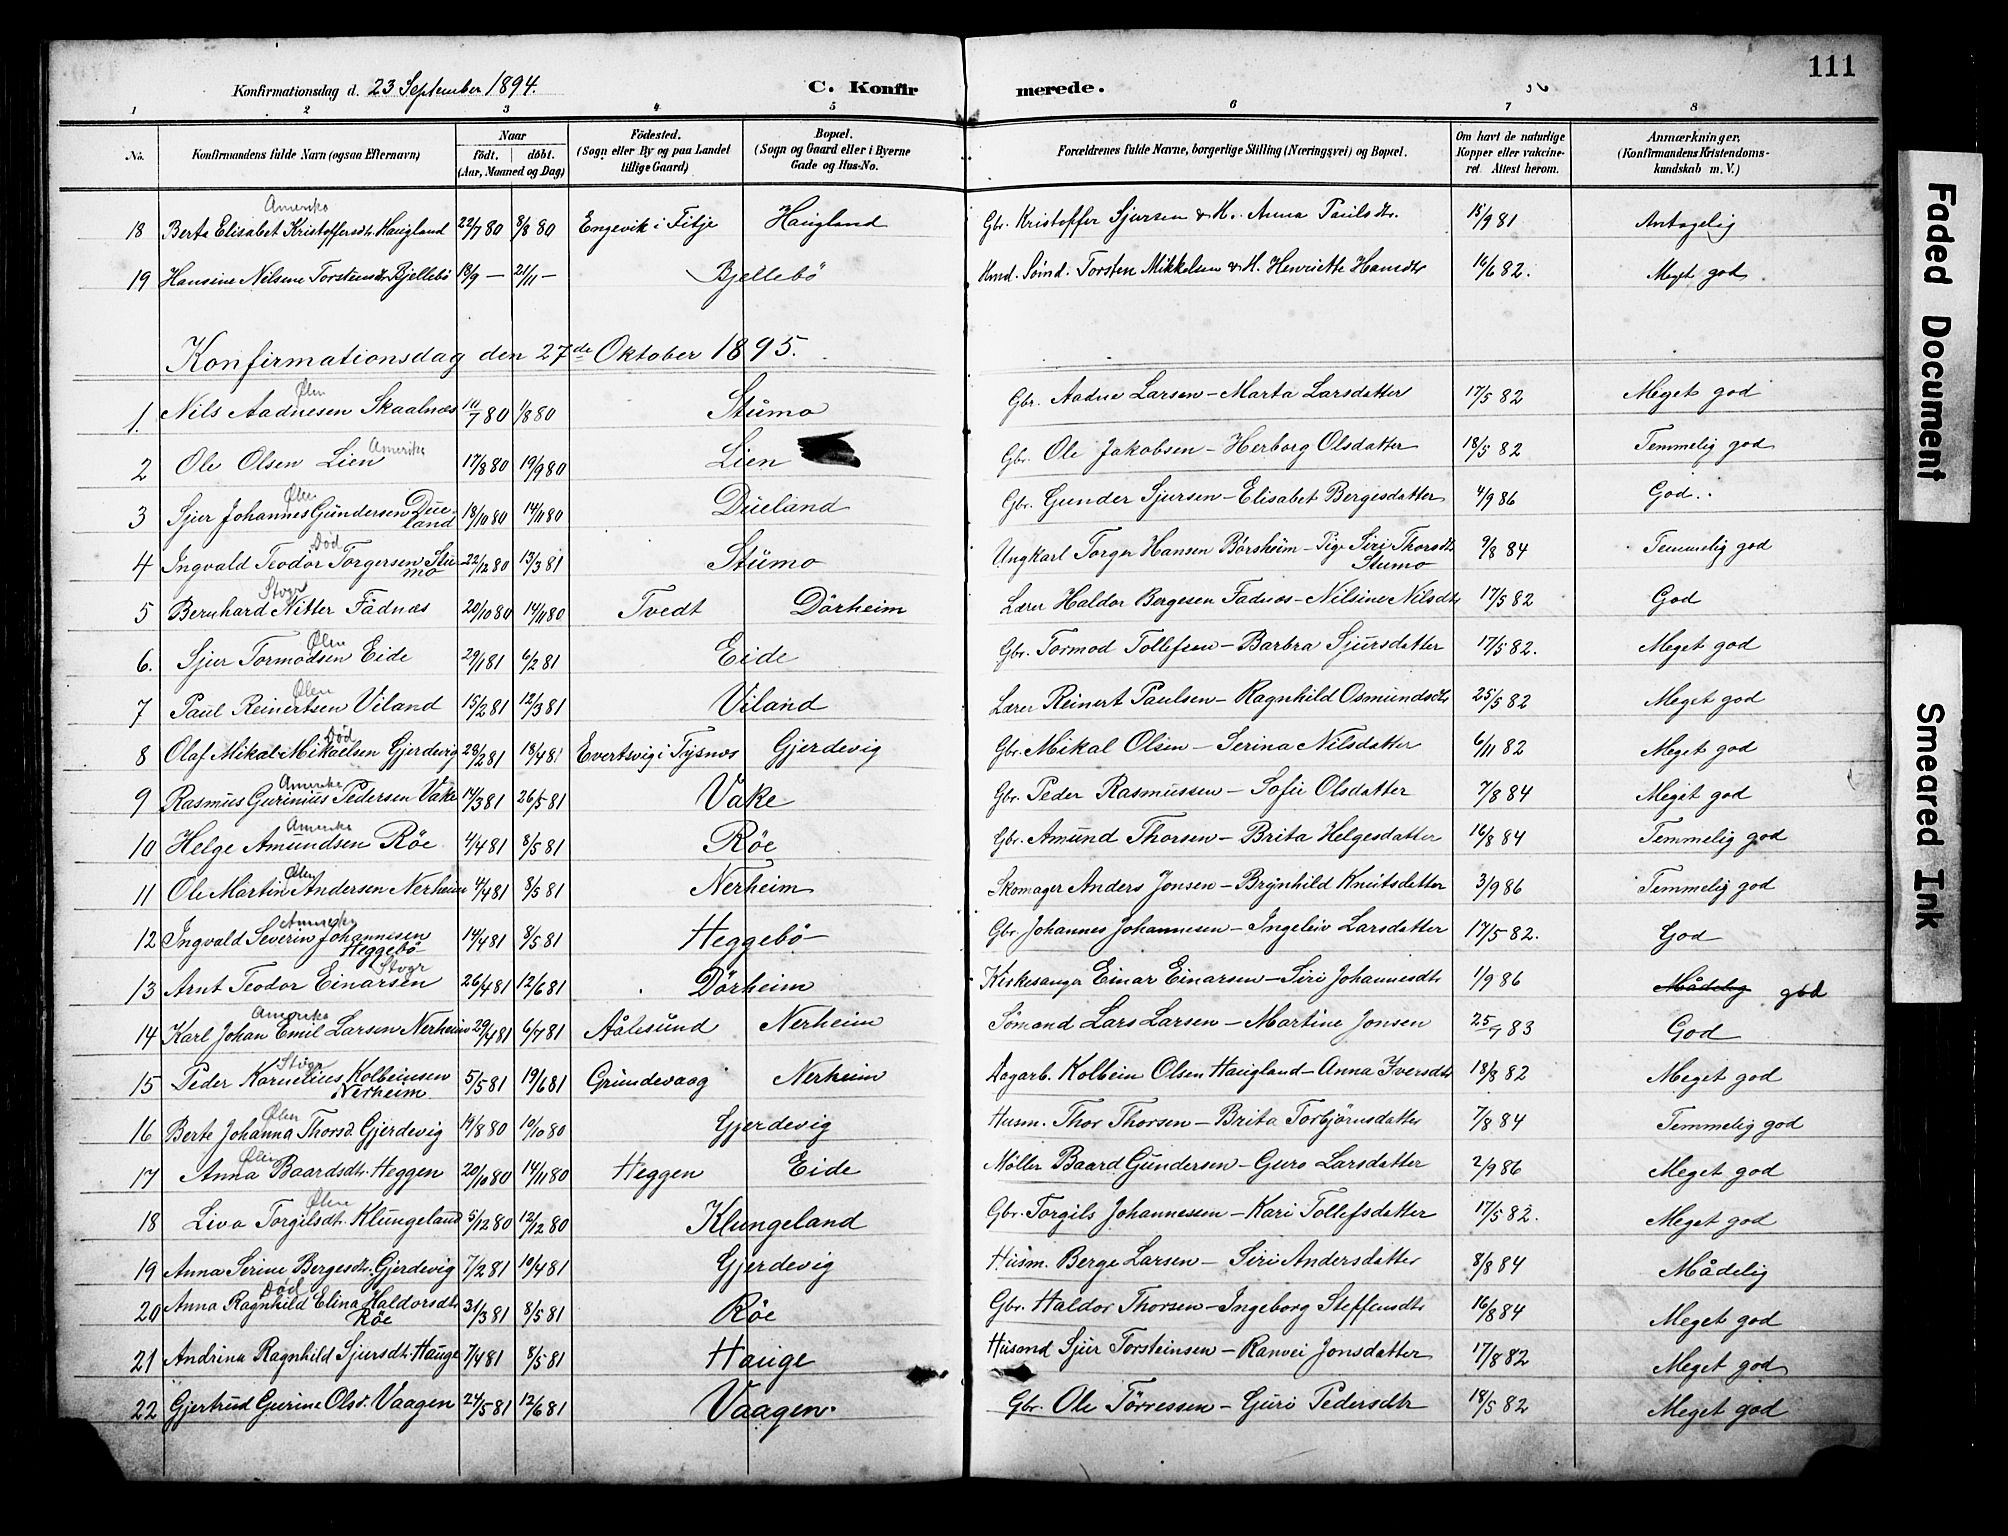 111
Konfirmationsdag d. 23 September 1894.
C. Konfirmerede.
1 2 3 4 5 6 7 8
No. Konfirmandens fulde Navn (ogsaa Efternavn) Naar født. døbt. (Aar, Maaned og Dag) Fødested. (Sogn eller By og paa Landet tillige Gaard) Bopæl. (Sogn og Gaard eller i Byerne Gade og Hus-No. Forældrenes fulde Navne, borgerlige Stilling (Næringsvei) og Bopæl. Om havt de naturlige Kopper eller vakcineret. Attest herom. Anmærkninger. (Konfirmandens Kristendomskundskab m. V.)
Amerika
18 Berta Elisabet Kristoffersdtr. Haugland 22/7 80 8/8 80 Engevik i Fitje Haugland Gbr. Kristoffer Sjursen & H. Anna Paulsdtr. 15/9 81 Antagelig
19 Hansine Nilsine Torstensdtr Bjellebö 13/9 — 21/11 — Bjellebö Hmd. Sömd. Torsten Mikkelsen & H. Henriette Hansdtr 16/6 82. Meget god
Konfirmationsdag den 27de Oktober 1895.
Ølen
1. Nils Aadnesen Skaalnæs 10/7 80 1/8 80 Stumo Gbr. Aadne Larsen – Marta Larsdatter 17/5 82 Meget god
2 Ole Olsen Lien Amerika 17/8 80 19/9 80 Lien Gbr. Ole Jakobsen – Herborg Olsdatter 18/5 82 Temmelig god
Ølen
3 Sjur Johannes Gundersen Dueland 18/10 80 14/11 80 Dueland Gbr. Gunder Sjursen – Elisabet Bergesdatter 4/9 86 God..
Död
4 Ingvald Teodor Torgersen Stumo 22/12 80 13/3 81 Stumo Ungkarl Torger Hansen Børsheim – Pige Siri Thorsdtr Stumo 9/8 84 Temmelig god
Stogr
5 Bernhard Nitter Fadnæs 20/10 80 14/11 80 Tvedt Dörheim Lærer Haldor Bergesen Fadnæs – Nilsine Nilsdtr 17/5 82 God
Ølen
6. Sjur Tormodsen Eide 29/1 81 6/2 81 Eide Gbr. Tormod Tollefsen – Barbra Sjursdatter 17/5 82. Meget god
Ølen
7 Paul Reinertsen Viland 15/2 81 12/3 81 Viland Lærer Reinert Paulsen – Ragnhild Osmundsdtr 25/5 82 Meget god
Död
8 Olaf Mikal Mikaelsen Gjerdevig 28/2 81 18/4 81 Evertsvig i Tysnæs Gjerdevig Gbr. Mikal Olsen – Serina Nilsdatter 6/11 82 Meget god
Amerika
9 Rasmus Gurinius Pedersen Vake 14/3 81 26/5 81 Vake Gbr. Peder Rasmussen – Sofie Olsdatter 7/8 84 Meget god
Amerika
10 Helge Amundsen Röe 4/4 81 8/5 81 Röe Gbr. Amund Thorsen – Brita Helgesdatter 16/8 84 Temmelig god
Ølen
11 Ole Martin Andersen Nerheim 4/4 81 8/5 81 Nerheim Skomager Anders Jonsen – Brynhild Knutsdatter 3/9 86 Temmelig god
Amerika
12 Ingvald Severin Johannesen Heggebö 14/4 81 8/5 81 Heggebö Gbr. Johannes Johannesen – Ingeleiv Larsdatter 17/5 82. God
Stogr
13 Arnt Teodor Einarsen 26/4 81 12/6 81 Dörheim Kirkesanger Einar Einarsen – Siri Johannesdtr 1/9 86 Mådelig god
Amerika
14 Karl Johan Emil Larsen Nerheim 29/4 81 6/7 81 Aålesund Nerheim Sömand Lars Larsen – Martine Jonsen 25/9 83 God
Stogr
15 Peder Kornelius Kolbeinsen Nerheim 5/5 81 19/6 81 Grundevaag Nerheim Dagarb. Kolbein Olsen Haugland – Anna Iversdtr 18/8 82 Meget god
Ølen
16 Berte Johanna Thorsd. Gjerdevig 14/8 80 10/10 80 Gjerdevig Husm. Thor Thorsen – Brita Torbjörnsdatter 7/8 84 Temmelig god
Ølen
17 Anna Baardsdtr. Heggen 20/10 80 14/11 80 Heggen Eide Möller Baard Gundersen – Guro Larsdatter 2/9 86 Meget god
Ølen
18 Liva Torgilsdt. Klungeland 5/12 80 12/12 80 Klungeland Gbr. Torgils Johannesen – Kari Tollefsdatter 17/5 82. Meget god
19 Anna Serine Bergesdtr. Gjerdevig 7/2 81 10/4 81 Gjerdevig Husm. Berge Larsen – Siri Andersdatter 8/8 84 Mådelig
Död
20 Anna Ragnhild Elina Haldorsdtr Röe 31/3 81 8/5 81 Röe Gbr. Haldor Thorsen – Ingeborg Steffensdtr 16/8 84 Meget god
21 Andrina Ragnhild Sjursdt. Hauge 7/4 81 8/5 81 Hauge Husmd Sjur Torsteinsen – Ranvei Jonsdatter 17/8 82 Meget god
22 Gjertrud Gurine Olsd. Vaagen 24/5 81 12/6 81 Vaagen. Gbr. Ole Törressen – Guro Pedersdtr 18/5 82 Meget god
Faded Document
Smeared Ink